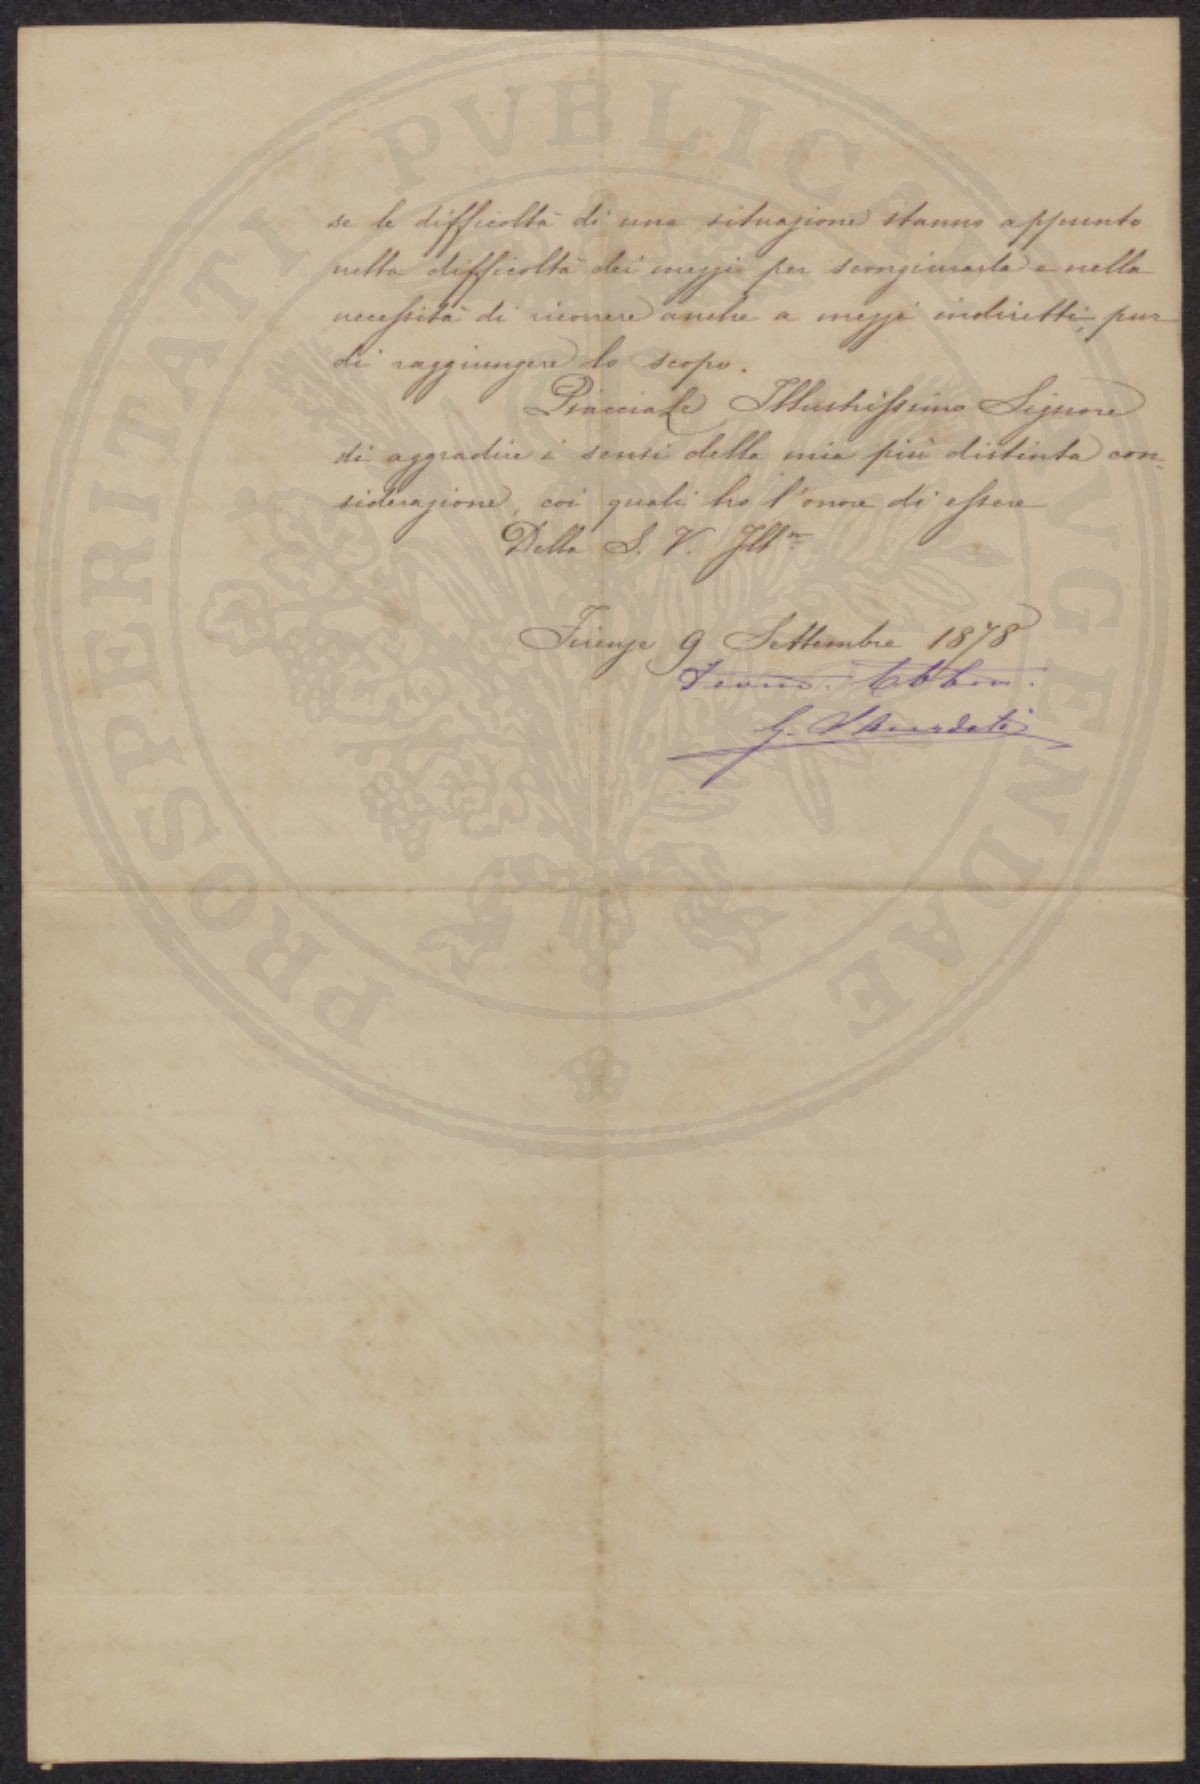 se le difficoltà di una situazione stanno appunto
nella difficoltà dei mezzi per scongiurarla e nella
necessità di ricorrere anche a mezzi indiretti, pur
di raggiungere lo scopo.
Piacciale Illustrissimo Signore
di aggradire i sensi della mia più distinta con-
siderazione, coi quali ho l'onore di essere
Della S. V. Ill.ma
Firenze 9 Settembre 1878
G.
PROSPERITATI PVBLICAE AVGENDAE